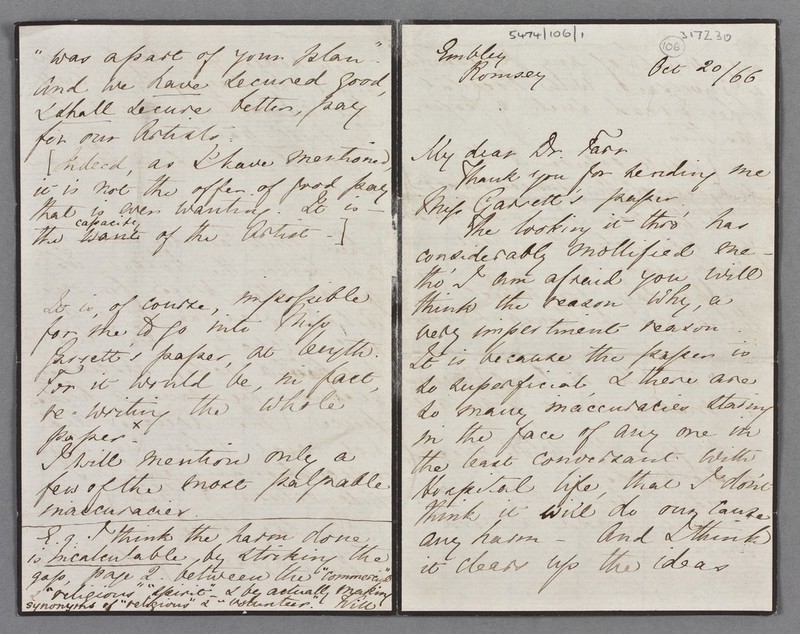 5474/106/1
106
317230
Embley
Romsey
Oct 20/66
My dear Dr. Farr
Thank you for sending me
Miss Garrett's paper.
The looking it thro' has
considerably mollified me -
tho' I am afraid you will
think the reason why, a
very impertinent reason.
It is because the paper is
so superficial, & there are
so many inaccuracies staring
in the face of any one in
the least conversant with
Hospital life, that I don't
think it will do our cause
any harm - And I think
it clears up the ideas
"was a part of your plan".
And we have secured good,
& shall secure better, pay
for our Artists.
[Indeed, as I have mentioned,
it is not the offer of good pay
that is ever wanting. It is -
capacity
the want of the Artist -]
It is, of course, impossible
for me to go into Miss
Garrett's paper, at length.
For it would be, in fact,
re-writing the whole
paper. x
I will mention only a
few of the most palpable
inaccuracies.
E.g. I think the harm done
is incalculable, by stocking the
gap, page 2. between the "commercial" &
"religious" "spirit" - & by actually making
synonyms of "religious" & "volunteer".